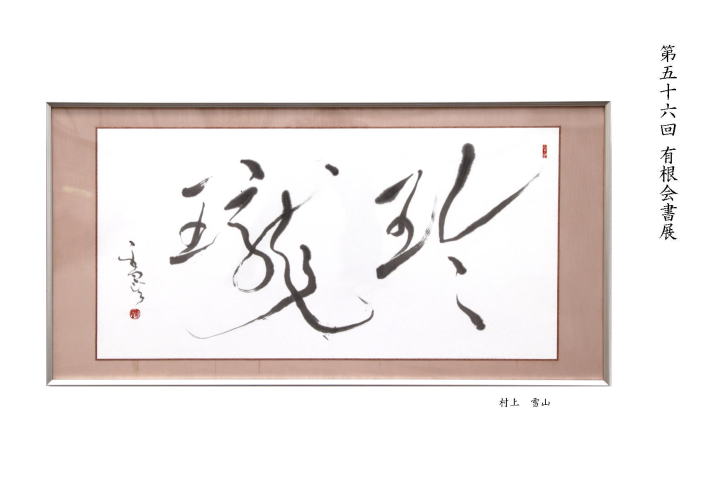 第五十六回 有根会書展
玲瓏
村上 雪山